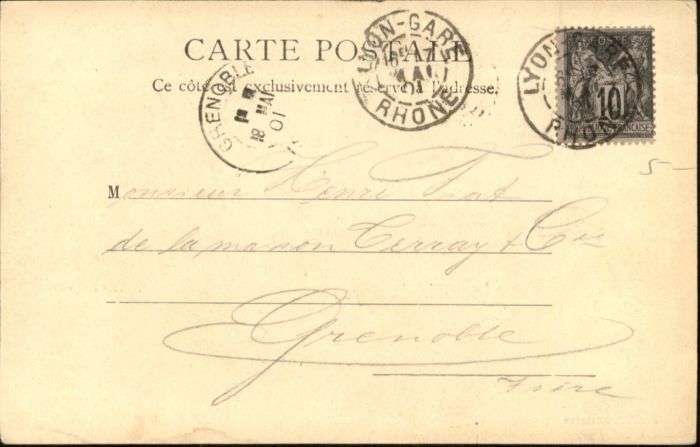 CARTE POSTALE
Ce côté est exclusivement réservé à l'adresse.
GRENOBLE
18 MAI 01
LYON-GARE
MAI 01
RHONE
LYON-GARE
RHONE
10
5-
Monsieur Henri
de la maison Terray & Cie
Grenoble
Isère